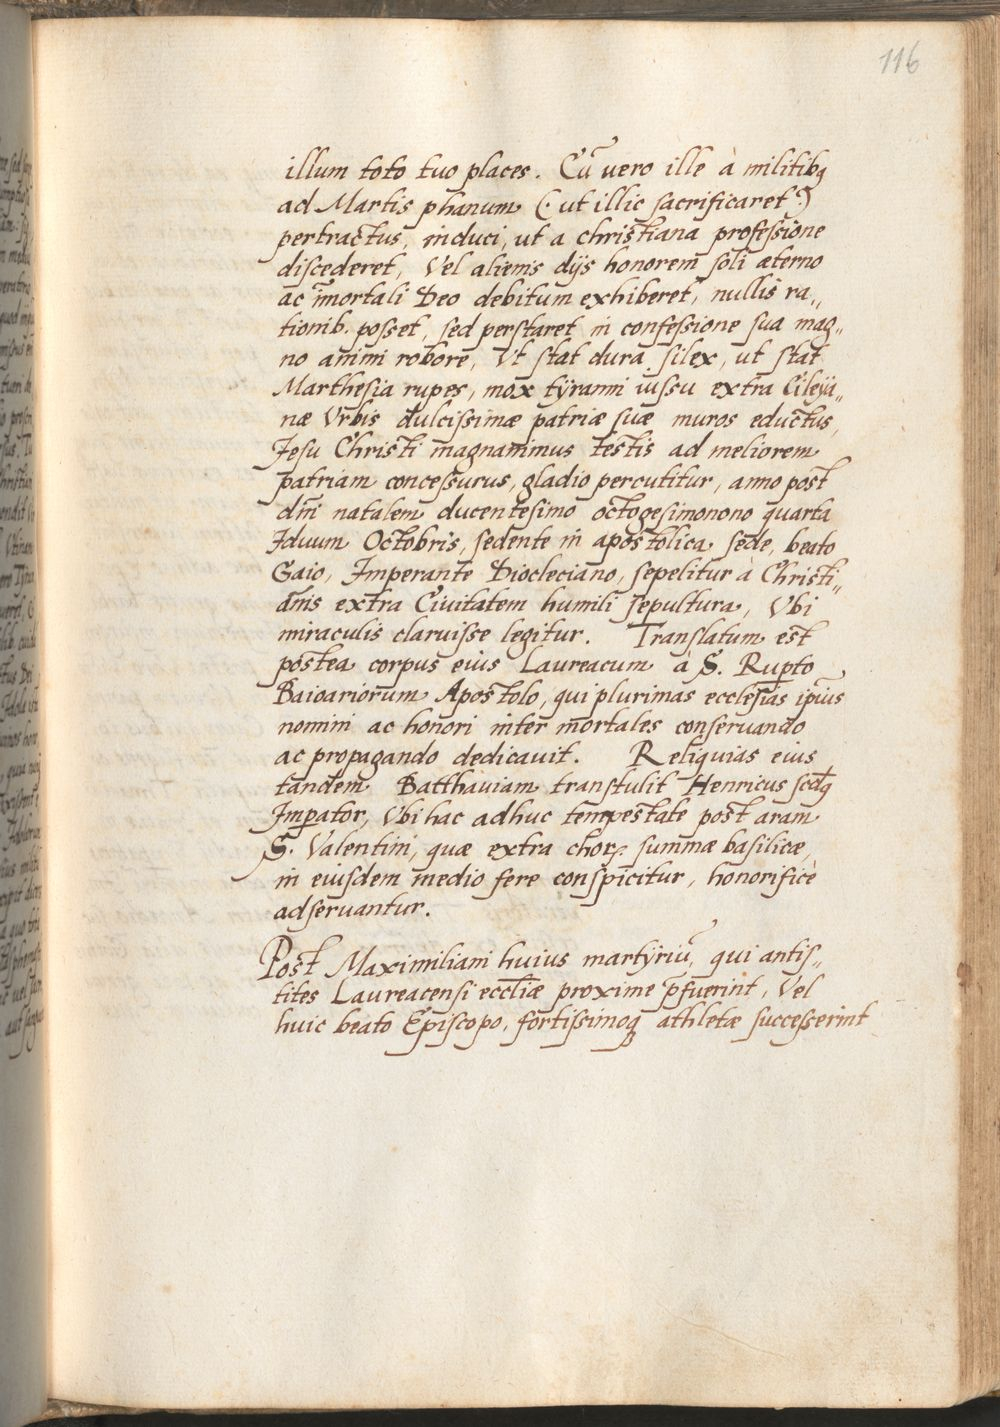 116
illum toto tuo places. Cū vero ille à militibꝗ
ad Martis phanum (: ut illic sacrificaret :)
pertractus, induci, ut a christiana professione
discederet, Vel alienis dijs honorem soli æterno
ac īmortali Deo debitum exhiberet, nullis ra„
tionib. posset, sed perstaret in confessione sua mag„
no animi robore, Vt stat dura silex, ut stat
Marthesia rupes, mox tÿranni iussu extra Cileÿa„
næ Vrbis dulcissimæ patriæ suæ muros eductus,
Jesu Christi magnanimus testis ad meliorem
patriam concessurus, gladio percutitur, anno post
dn̄i natalem ducentesimo octogesimonono quarta
Iduum Octobris, sedente in apostolica sede, beato
Gaio, Imperante Diocleciano, sepelitur à Christi„
anis extra Ciuitatem humili sepultura, Vbi
miraculis claruisse legitur. Translatum est
postea corpus eius Laureacum à S. Rupto
Baioariorum Apostolo, qui plurimas ecclesias ip̄ius
nomini ac honori inter mortales conseruando
ac propagando dedicauit. Reliquias eius
tandem Batthauiam transtulit Henricus scd̄ꝗ
Imꝑator, Vbi hac adhuc tempestate post aram
S. Valentini, quæ extra choꝝ summæ basilicæ,
in eiusdem medio fere conspicitur, honorificè
adseruantur.
Post Maximiliani huius martÿriū, qui antis„
tites Laureacensi eccl̄iæ proxime p̄fuerint, Vel
huic beato Episcopo, fortissimoꝗ athletæ successerint